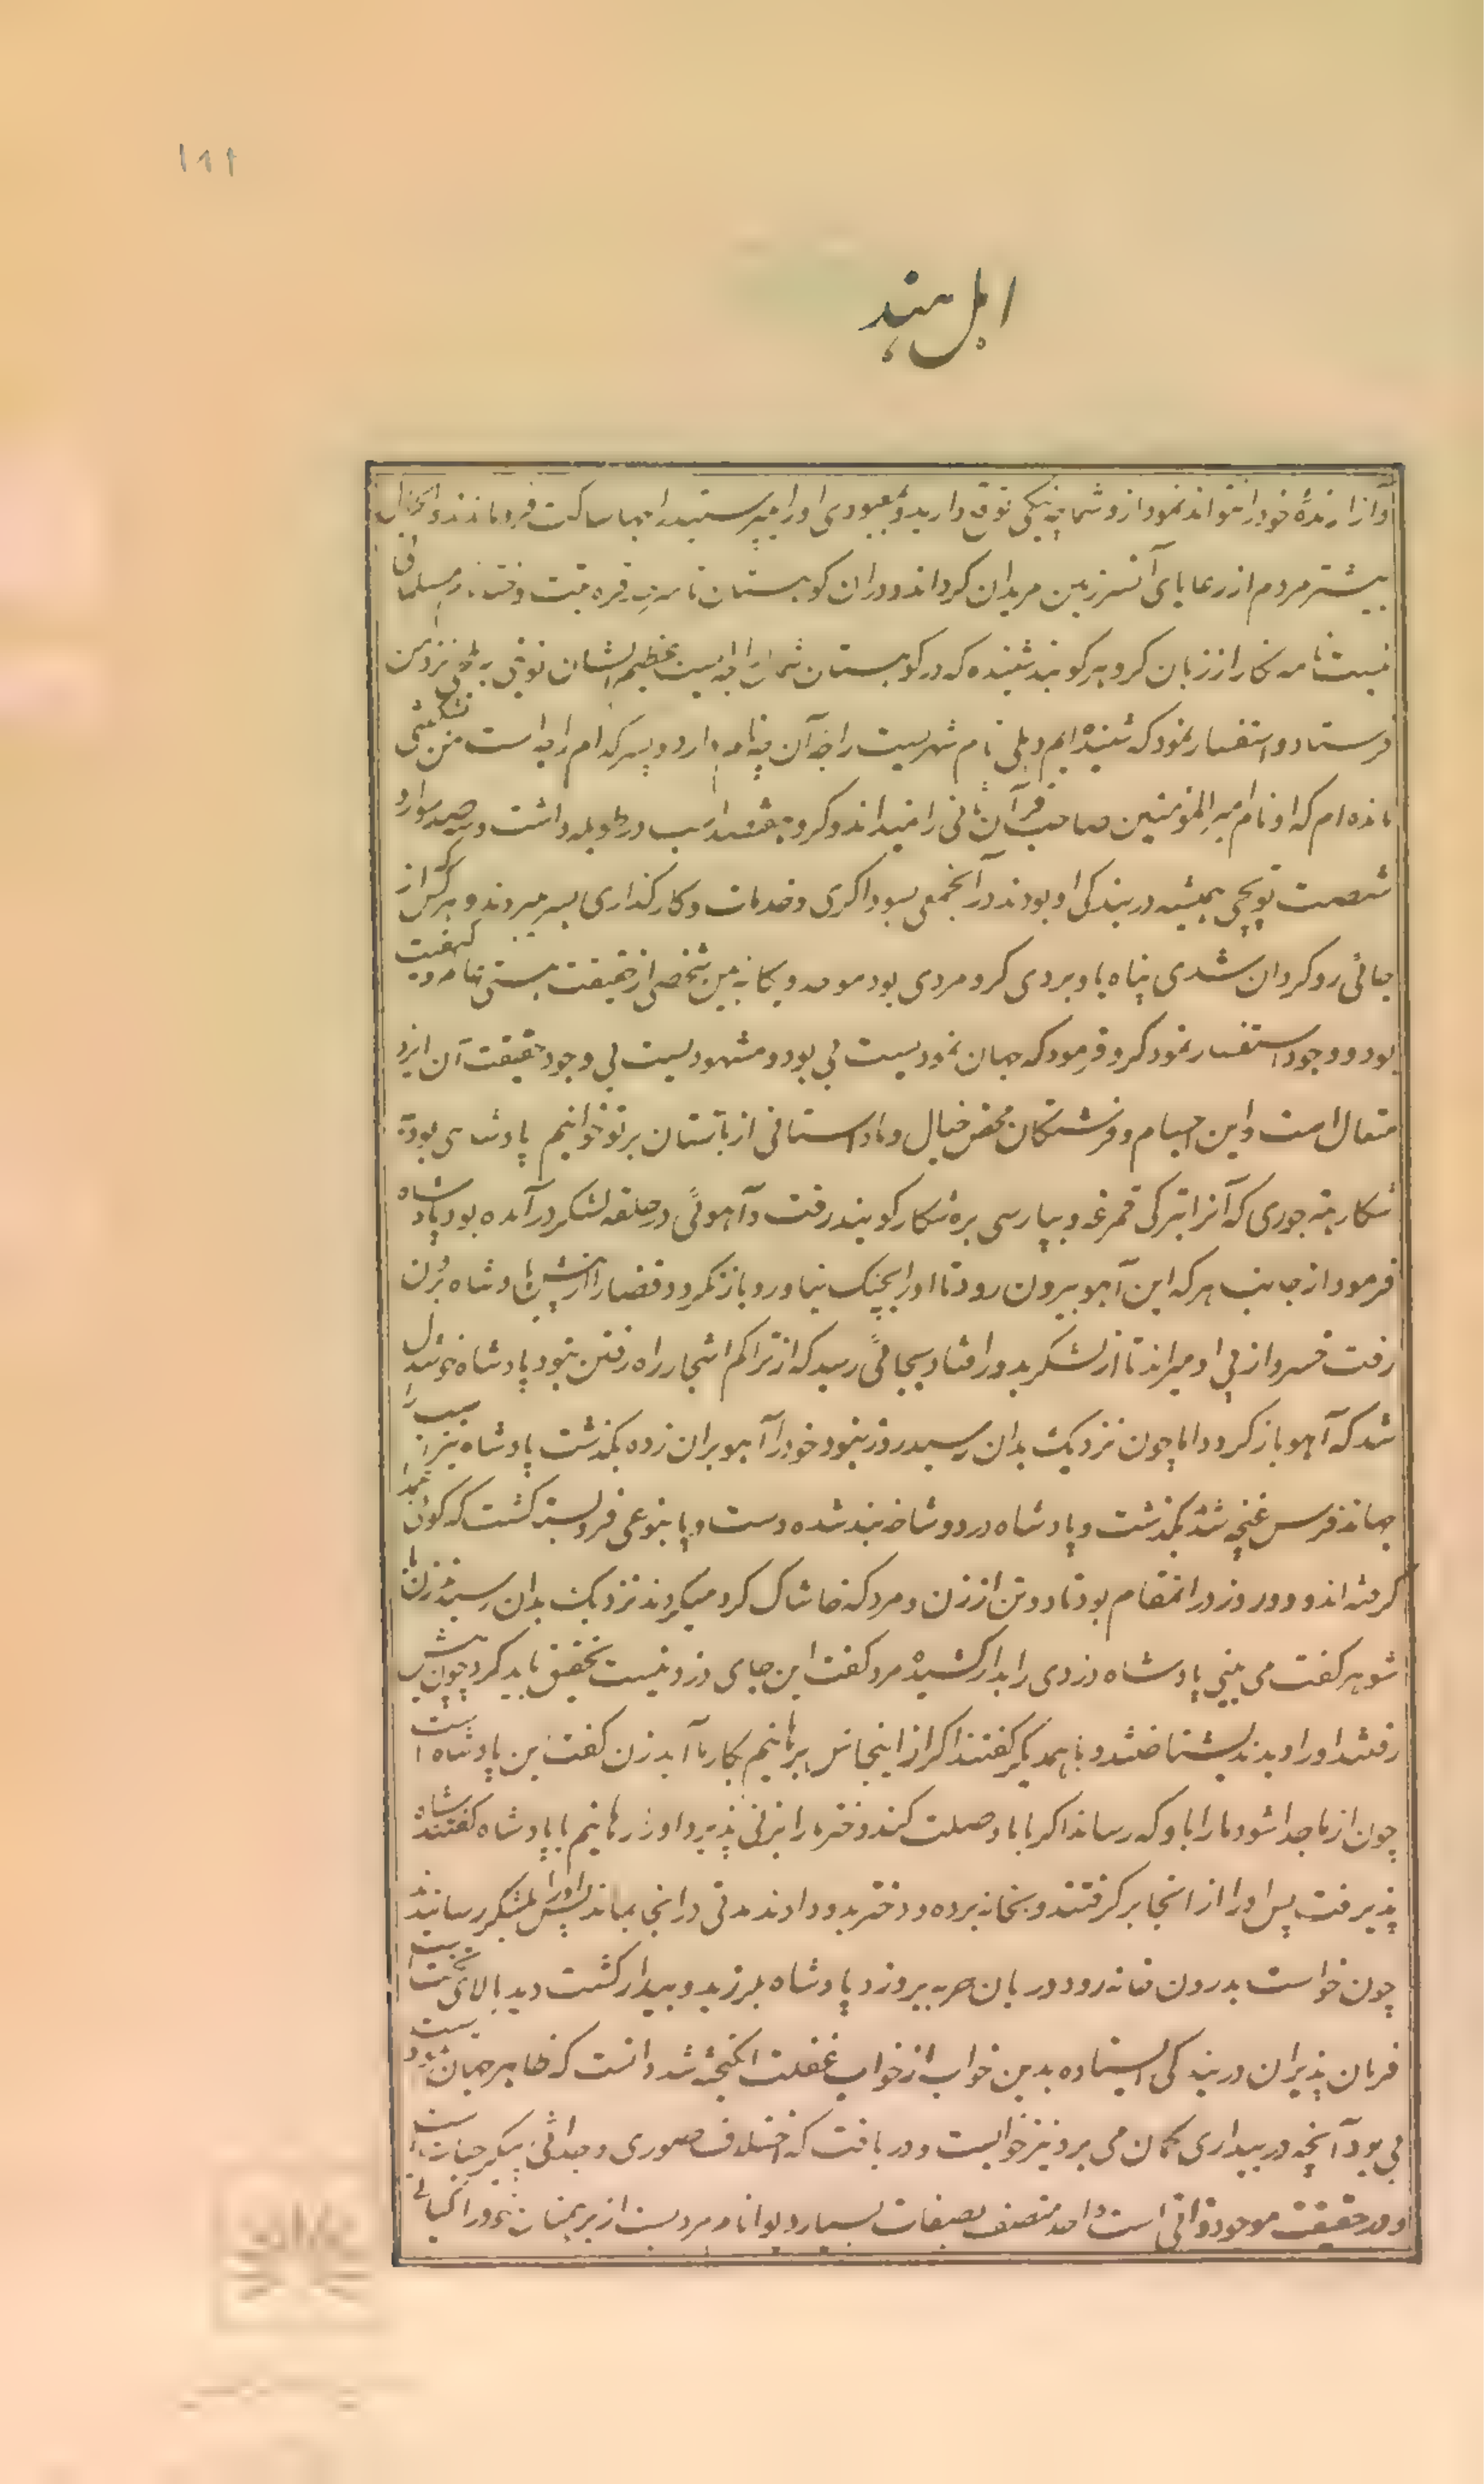 ۱۸۹
اهل هند
آزار ارندهٔ خود را نتواند نمود از و شما چه نیکی توقع دارید و بمعبودی او را میپرستید اینها ساکت فرو ماندند و
بیشتر مردم از رعایای آنسرزمین مریدان کرو اند و دران کوهستان تا سرحد تبت وختا مسلمانی
نیست نامه نگار از زبان کرو هرکوبند شنیده که در کوهستان شمال راجه ایست عظیم الشان نوبتی نزد من
فرستاد و استفسار نمود که شنیده ایم دهلی نام شهریست راجه آن چه نام دارد و پسر کدام راجه است من
مانده ام که او نام امیر المؤمنین صاحب قران ثانی را نمیداند و کرو هفتصد اسب در طویله داشت و سیصد سوار و
شصت توپچی همیشه در بندکی او بودند در آنجمعی بسوداکری و خدمات و کارکذاری بسر میبردند و هرکس که از
جائی روکردان شدی پناه باو بردی کرو مردی بود موحد و یکانه بین شخصی از حقیقت هستی نامه
بود و وجود استفسار نمود کرو فرمود که جهان نمودیست بی بود و مشهودیست بی وجود حقیقت آن ایزد
متعال است و این اجسام و فرشتکان محض خیال و ما داستانی از باستان بر تو خوانیم پادشاهی بود
شکار که آنرا بترکی قمرغه و بپارسی بره شکار کویند رفت و آهوئی در حلقه لشکر درآمده بود پادشاه
فرمود از جانب هرکه این آهو بیرون رود تا او را بچنک نیاورد باز نکردد قضا را از پیش پادشاه برون
رفت خسرو از پی او میراند تا از لشکر بدور افتاد بجائی رسید که از تراکم اشجار راه رفتن نبود پادشاه خوشدل
شد که آهو باز کردد اما چون نزدیک بدان رسید روزنی بود خود را آهو بران زده بکذشت پادشاه نیز اسب را
جهاند فرس غنچه شد بکذشت و پادشاه در دو شاخه بند شده دست و پا بنوعی فرو بسته کشت که کوئی عمدا
کرفته اند و دو روز در انمقام بود تا دو تن از زن و مرد که خاشاک کرد میکردند نزدیک بدان رسیدند زن با
شوهر کفت می بینی پادشاه دزدی را بدار کشیده مرد کفت این جای دزد نیست تحقیق باید کرد چون پیش
رفتند او را دیدند بشناختند و با همدیکر کفتند اکر از اینجاش برهانیم بکار ما آید زن کفت این پادشاه است
چون از ما جدا شود ما را باو که رساند اکر با ما وصلت کند دختر ما را بزنی پذیرد او را رهانیم با پادشاه کفتند شاه
پذیرفت پس او را از انجا برکرفتند و بخانه برده و دختر بدو دادند مدتی در انجا بماند پس او را بلشکر رسانیدند
چون خواست بدرون خانه رود دربان حربه برو زد پادشاه بلرزید و بیدار کشت دید بالای تخت است
فرمان پذیران در بندکی ایستاده بدین خواب از خواب غفلت انکیخته شد دانست که ظاهر جهان نمودیست
بی بود آنچه در بیداری کمان می برد نیز خوابیست و دریافت که اختلاف صوری و جدائی پیکر
و در حقیقت موجود واقی است واحد متصف بصفات بسیار دیوانا مردیست از برهمنان خود را کیانی